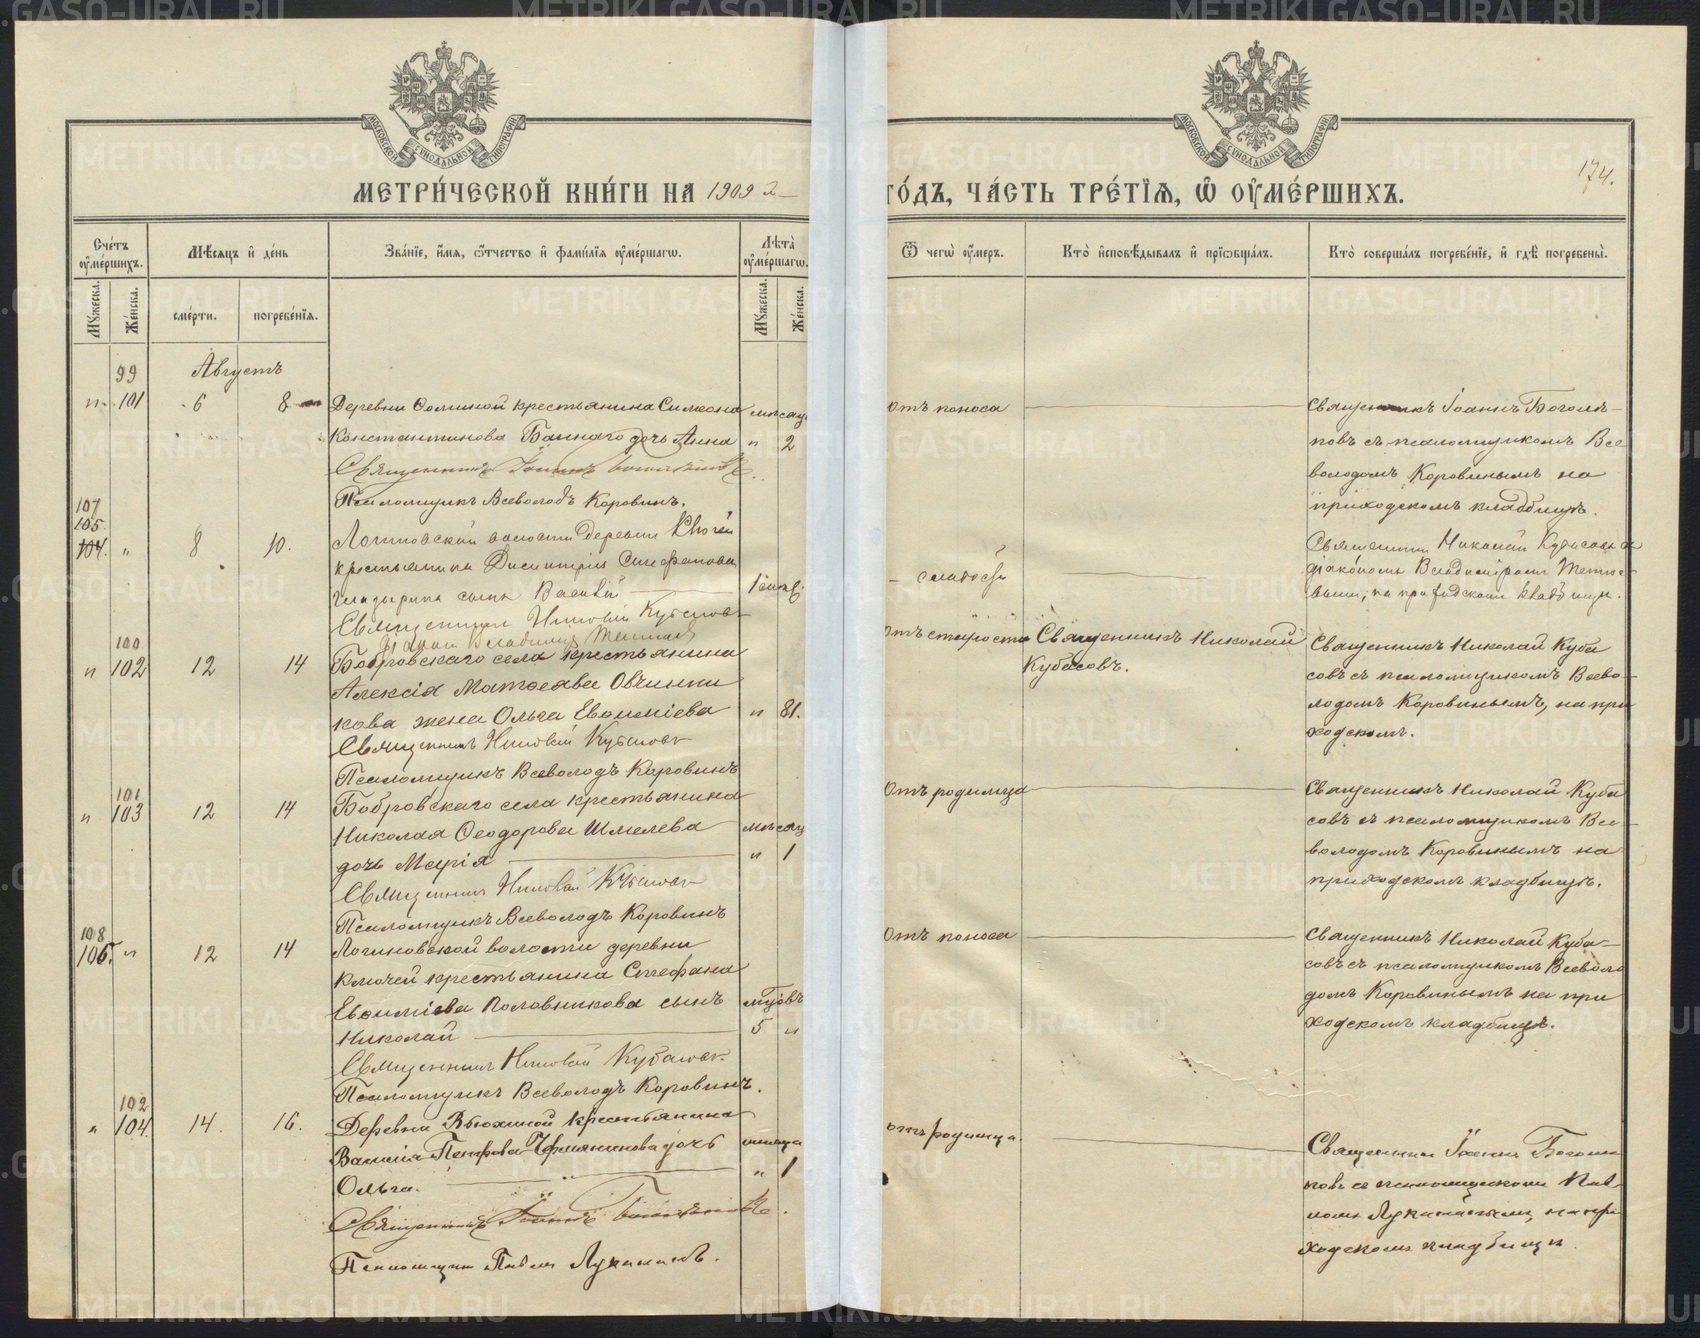 METRIKI.GASO-URAL.RU
МОСКОВСКОЙ СѴНОДАЛЬНОЙ ТИПОГРАФІИ
МОСКОВСКОЙ СѴНОДАЛЬНОЙ ТИПОГРАФІИ
МЕТРИ́ЧЕСКОЙ КНИ́ГИ НА 1909 г
ГО́ДЪ, ЧА́СТЬ ТРЕ́ТІѦ, Ѽ ОУ҆МЕ́РШИХЪ.
174.
Сче́тъ оу҆ме́ршихъ.
Мѣ́сяцъ и҆ де́нь
Зва́ніе, и҆́мя, ѻ҆́тчество и҆ фами́лія оу҆ме́ршагѡ.
Лѣ́та оу҆ме́ршагѡ.
Ѿ чегѡ̀ оу҆́меръ.
Кто̀ и҆сповѣ́дывалъ и҆ прїѡбща́лъ.
Кто̀ соверша́лъ погребе́ніе, и҆ гдѣ̀ погребены̀.
Мꙋ́жеска.
Же́нска.
сме́рти.
погребе́нія.
Мꙋ́жеска.
Же́нска.
99
Августъ
101
6
8
Деревни Соминой крестьянина Симеона
Константинова Баннаго дочь Анна
мѣсяц
2
Священникъ Іоаннъ
Псаломщикъ Всеволодъ Коровинъ.
отъ поноса
Священникъ Іоаннъ Боголѣ-
повъ съ псаломщикомъ Все
володомъ Коровинымъ на
приходскомъ кладбищѣ.
107
105.
104.
8
10.
Логиновской волости деревни Ключей
крестьянина Димитрія Стефанова
сынъ Василій
1
Священникъ Николай Кубасовъ
Діаконъ Владиміръ
слабости
Священникъ Николай Кубасовъ съ
діакономъ Владиміромъ
на приходскомъ кладбищѣ.
100
102
12
14
Бобровскаго села крестьянина
Алексія Матѳеева Овчинни
кова жена Ольга Евѳиміева
81.
Священникъ Николай Кубасовъ
Псаломщикъ Всеволодъ Коровинъ
отъ старости
Священникъ Николай
Кубасовъ.
Священникъ Николай Куба
совъ съ псаломщикомъ Всево-
лодомъ Коровинымъ, на при
ходскомъ.
101
103
12
14
Бобровскаго села крестьянина
Николая Ѳеодорова Шмелева
дочь Марія
мѣсяц
1
Священникъ Николай Кубасовъ
Псаломщикъ Всеволодъ Коровинъ
отъ родимца
Священникъ Николай Куба
совъ съ псаломщикомъ Все-
володомъ Коровинымъ на
приходскомъ кладбищѣ.
108
106.
12
14
Логиновской волости деревни
Ключей крестьянина Стефана
Евѳиміева Половникова сынъ
Николай
5
Священникъ Николай Кубасовъ.
Псаломщикъ Всеволодъ Коровинъ.
отъ поноса
Священникъ Николай Куба-
совъ съ псаломщикомъ Всеволо
домъ Коровинымъ на при
ходскомъ кладбищѣ.
102
104.
14.
16.
Деревни Вьюхиной крестьянина
Василія Петрова дочь
Ольга.
1
Священникъ Іоаннъ
Псаломщикъ Павелъ Лукановъ.
отъ родимца.
Священникъ Іоаннъ Боголѣ
повъ съ псаломщикомъ Пав-
ломъ на при
ходскомъ кладбищѣ